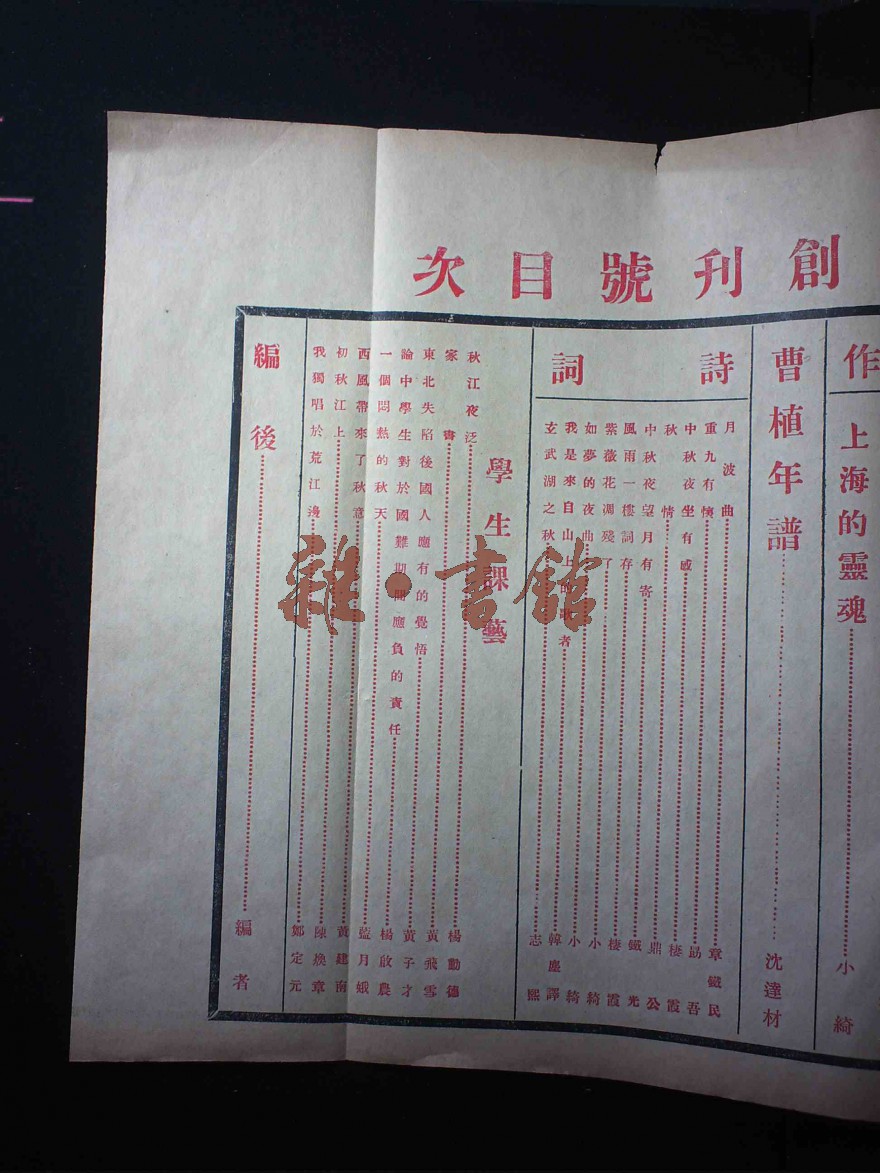 創刊號目次
作
上海的靈魂……小綺
曹植年譜……沈達材
詩詞
月波曲……章鐵民
重九有懷……勗吾
中秋夜坐有感……棲霞
秋情……鼎公
中秋夜望月有寄……鐵光
風雨一樓詞存……棲霞
紫薇花凋殘了……小綺
如夢的夜曲……小綺
我是來自山上的歌者……韓塵譯
玄武湖之秋……志熙
學生課藝
秋江夜泛……楊勳德
家書……黃飛雪
東北失陷後國人應有的覺悟……黃子才
論中學生對於國難期間應負的責任……楊啟農
一個悶熱的秋天……藍月娥
西風帶來了秋意……黃建南
初秋江上……陳煥章
我獨唱於荒江邊……鄭定元
編後……編者
雜·書館